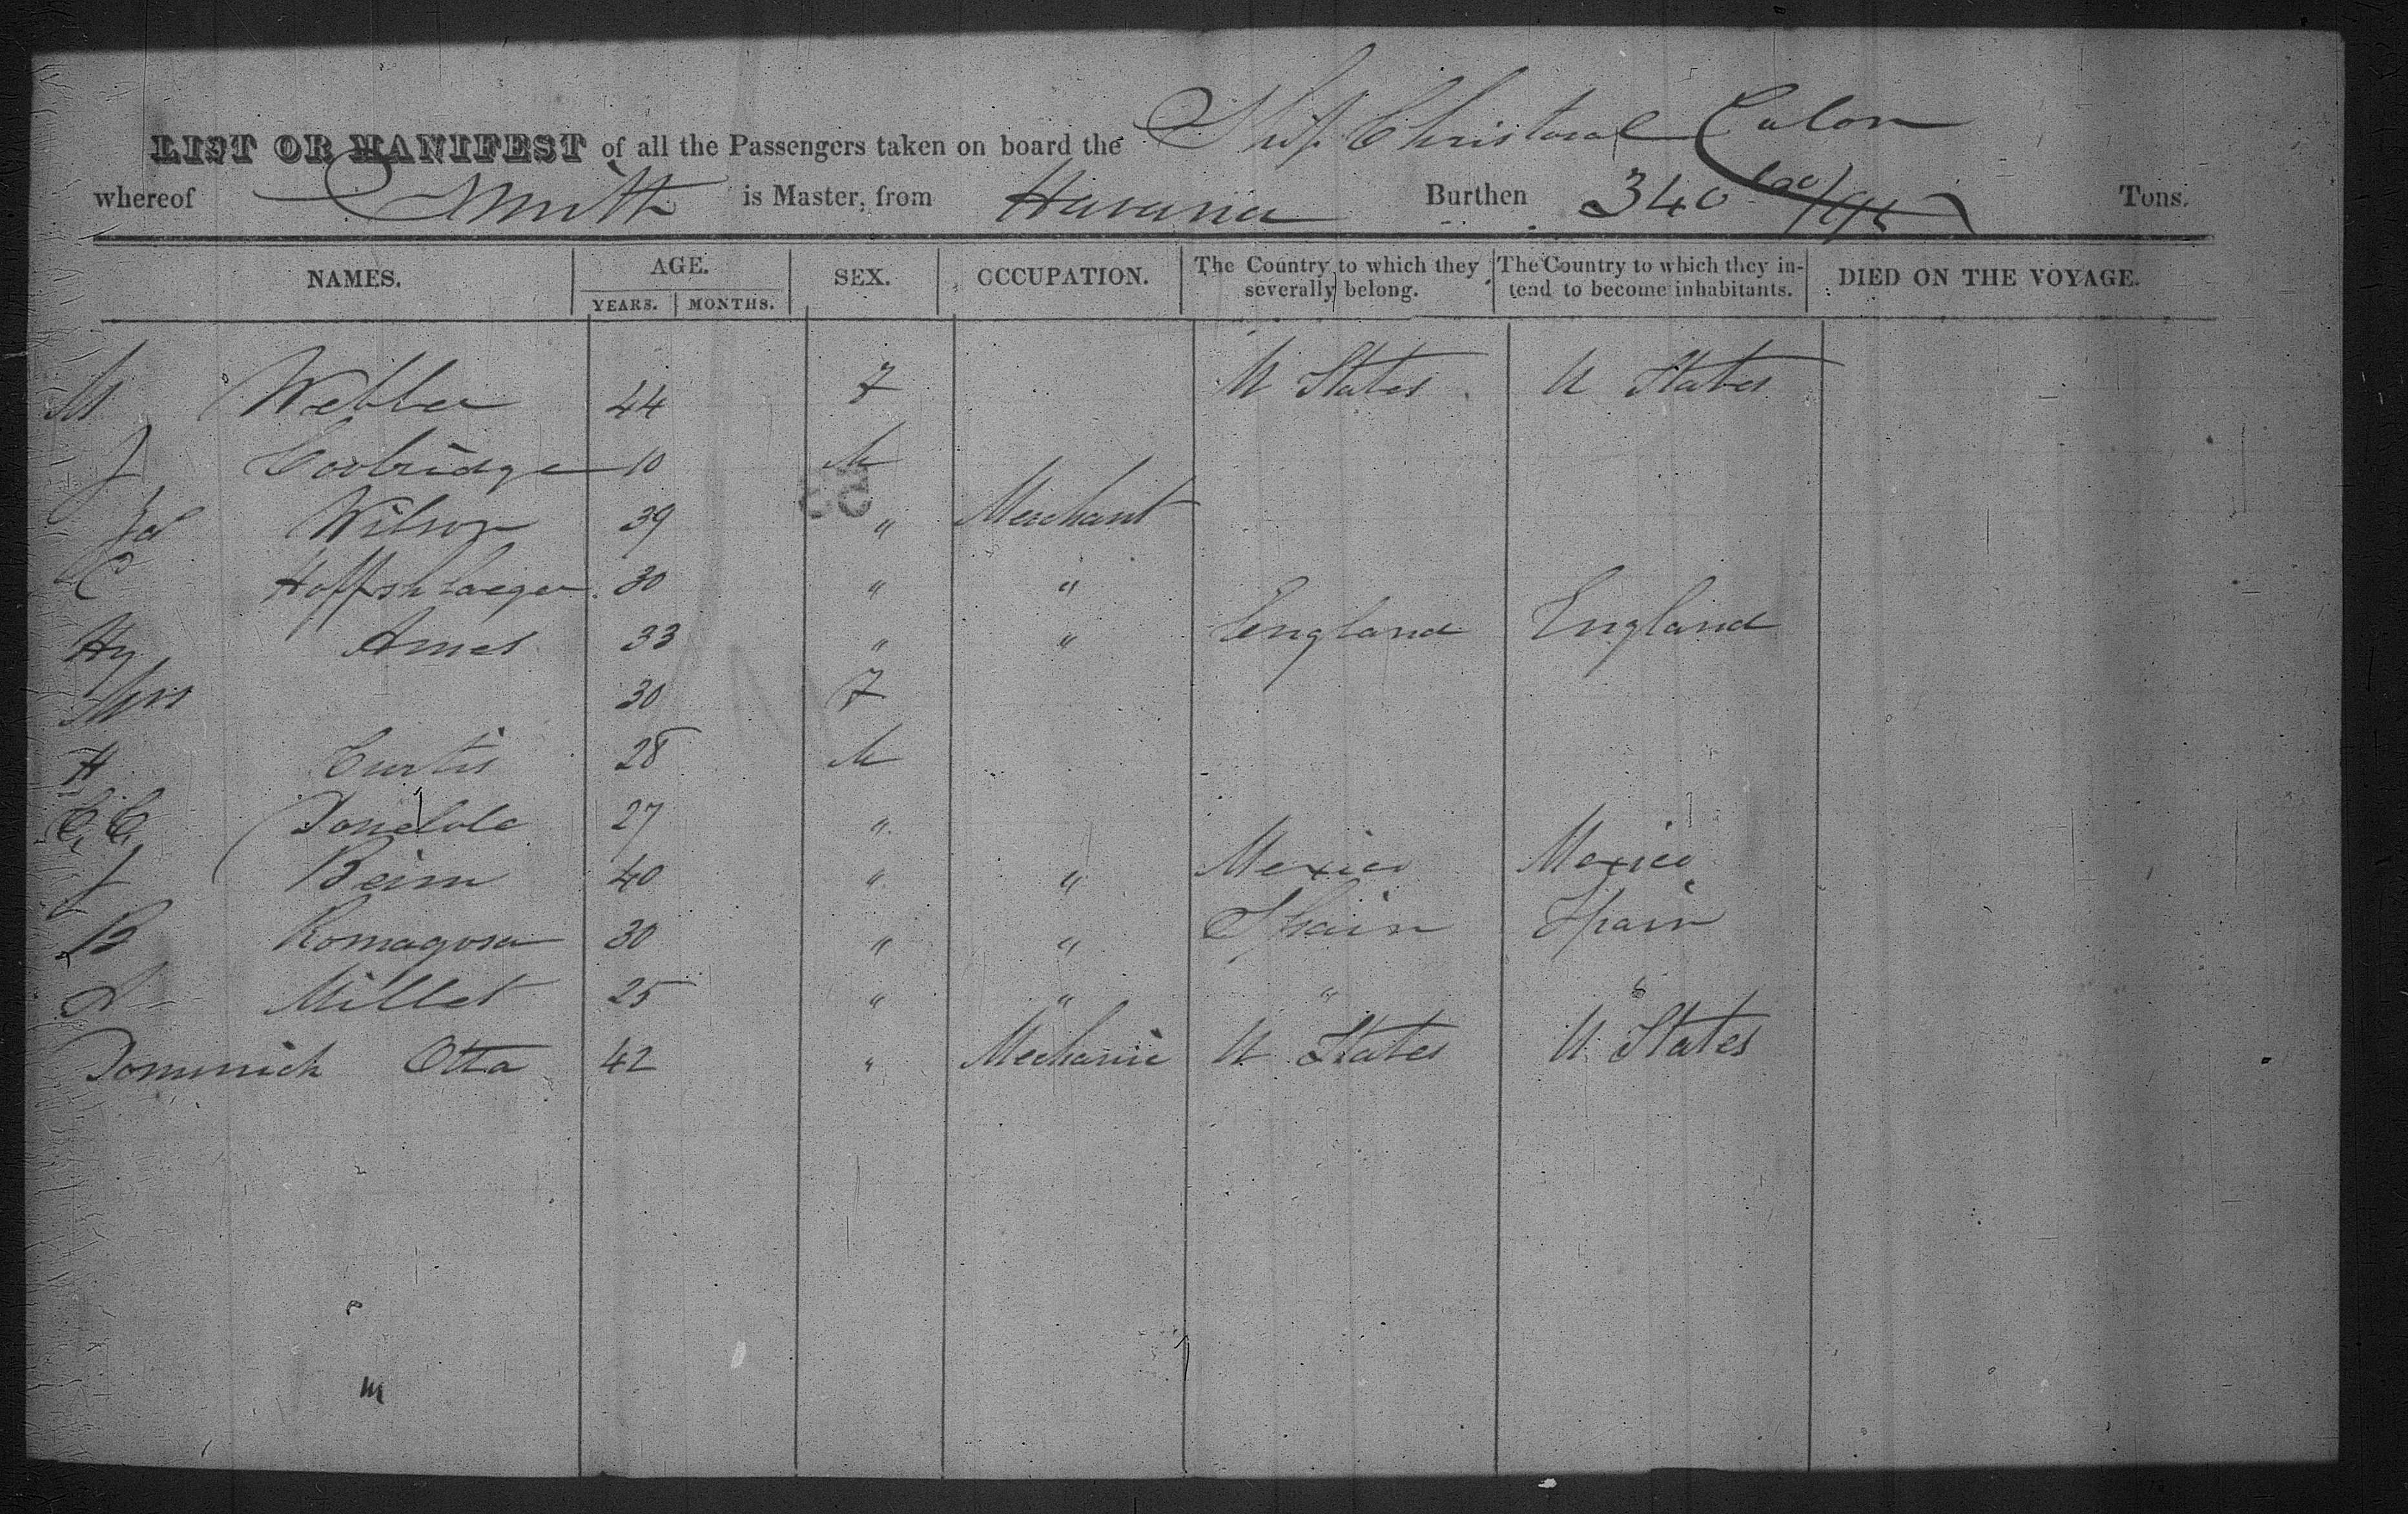 LIST OR MANIFEST of all the Passengers taken on board the Ship Christoval Colon
whereof Smith is Master, from Havana Burthen 340 Tons.
NAMES. AGE. YEARS. MONTHS. SEX. OCCUPATION. The Country to which they severally belong. The Country to which they intend to become inhabitants. DIED ON THE VOYAGE.
M Webber 44 F U States U States
J Coolridge 10 M
Jd Wilson 39 " Merchant
C Hoffshlaeger 30 " "
Hy Ames 33 " " England England
Mrs 30 F
H Curtis 28 M
C. C. 27 "
J Beim 40 " " Mexico Mexico
B Romagosa 30 " " Spain Spain
A Millet 25 " " " "
Dominick Otta 42 " Mechanic U States U States